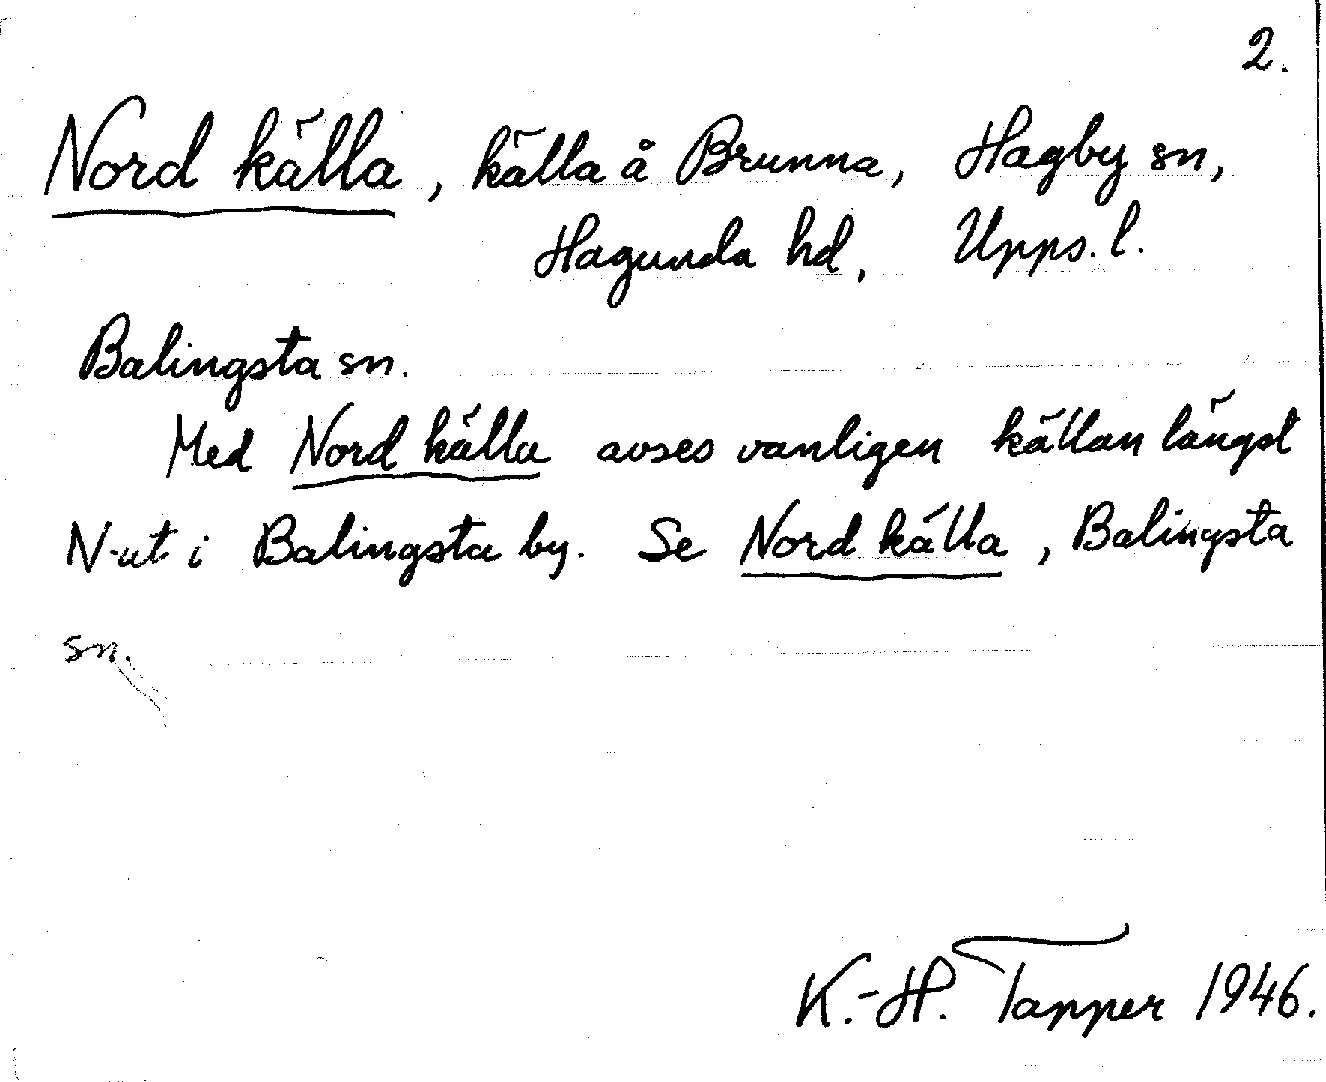 2.
Nord källa, källa å Brunna, Hagby sn,
Hagunda hd, Upps. l.
Balingsta sn.
Med Nord källa avses vanligen källan längst
N-ut i Balingsta by. Se Nord källa, Balingsta
sn.
K.-H. Tapper 1946.